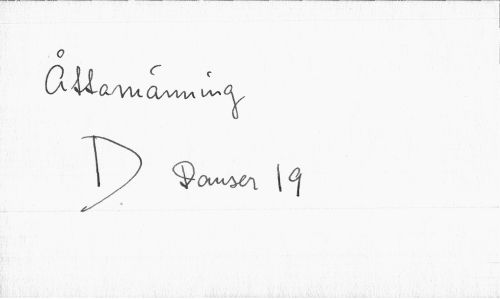 Åttamänning
D. Danser 19